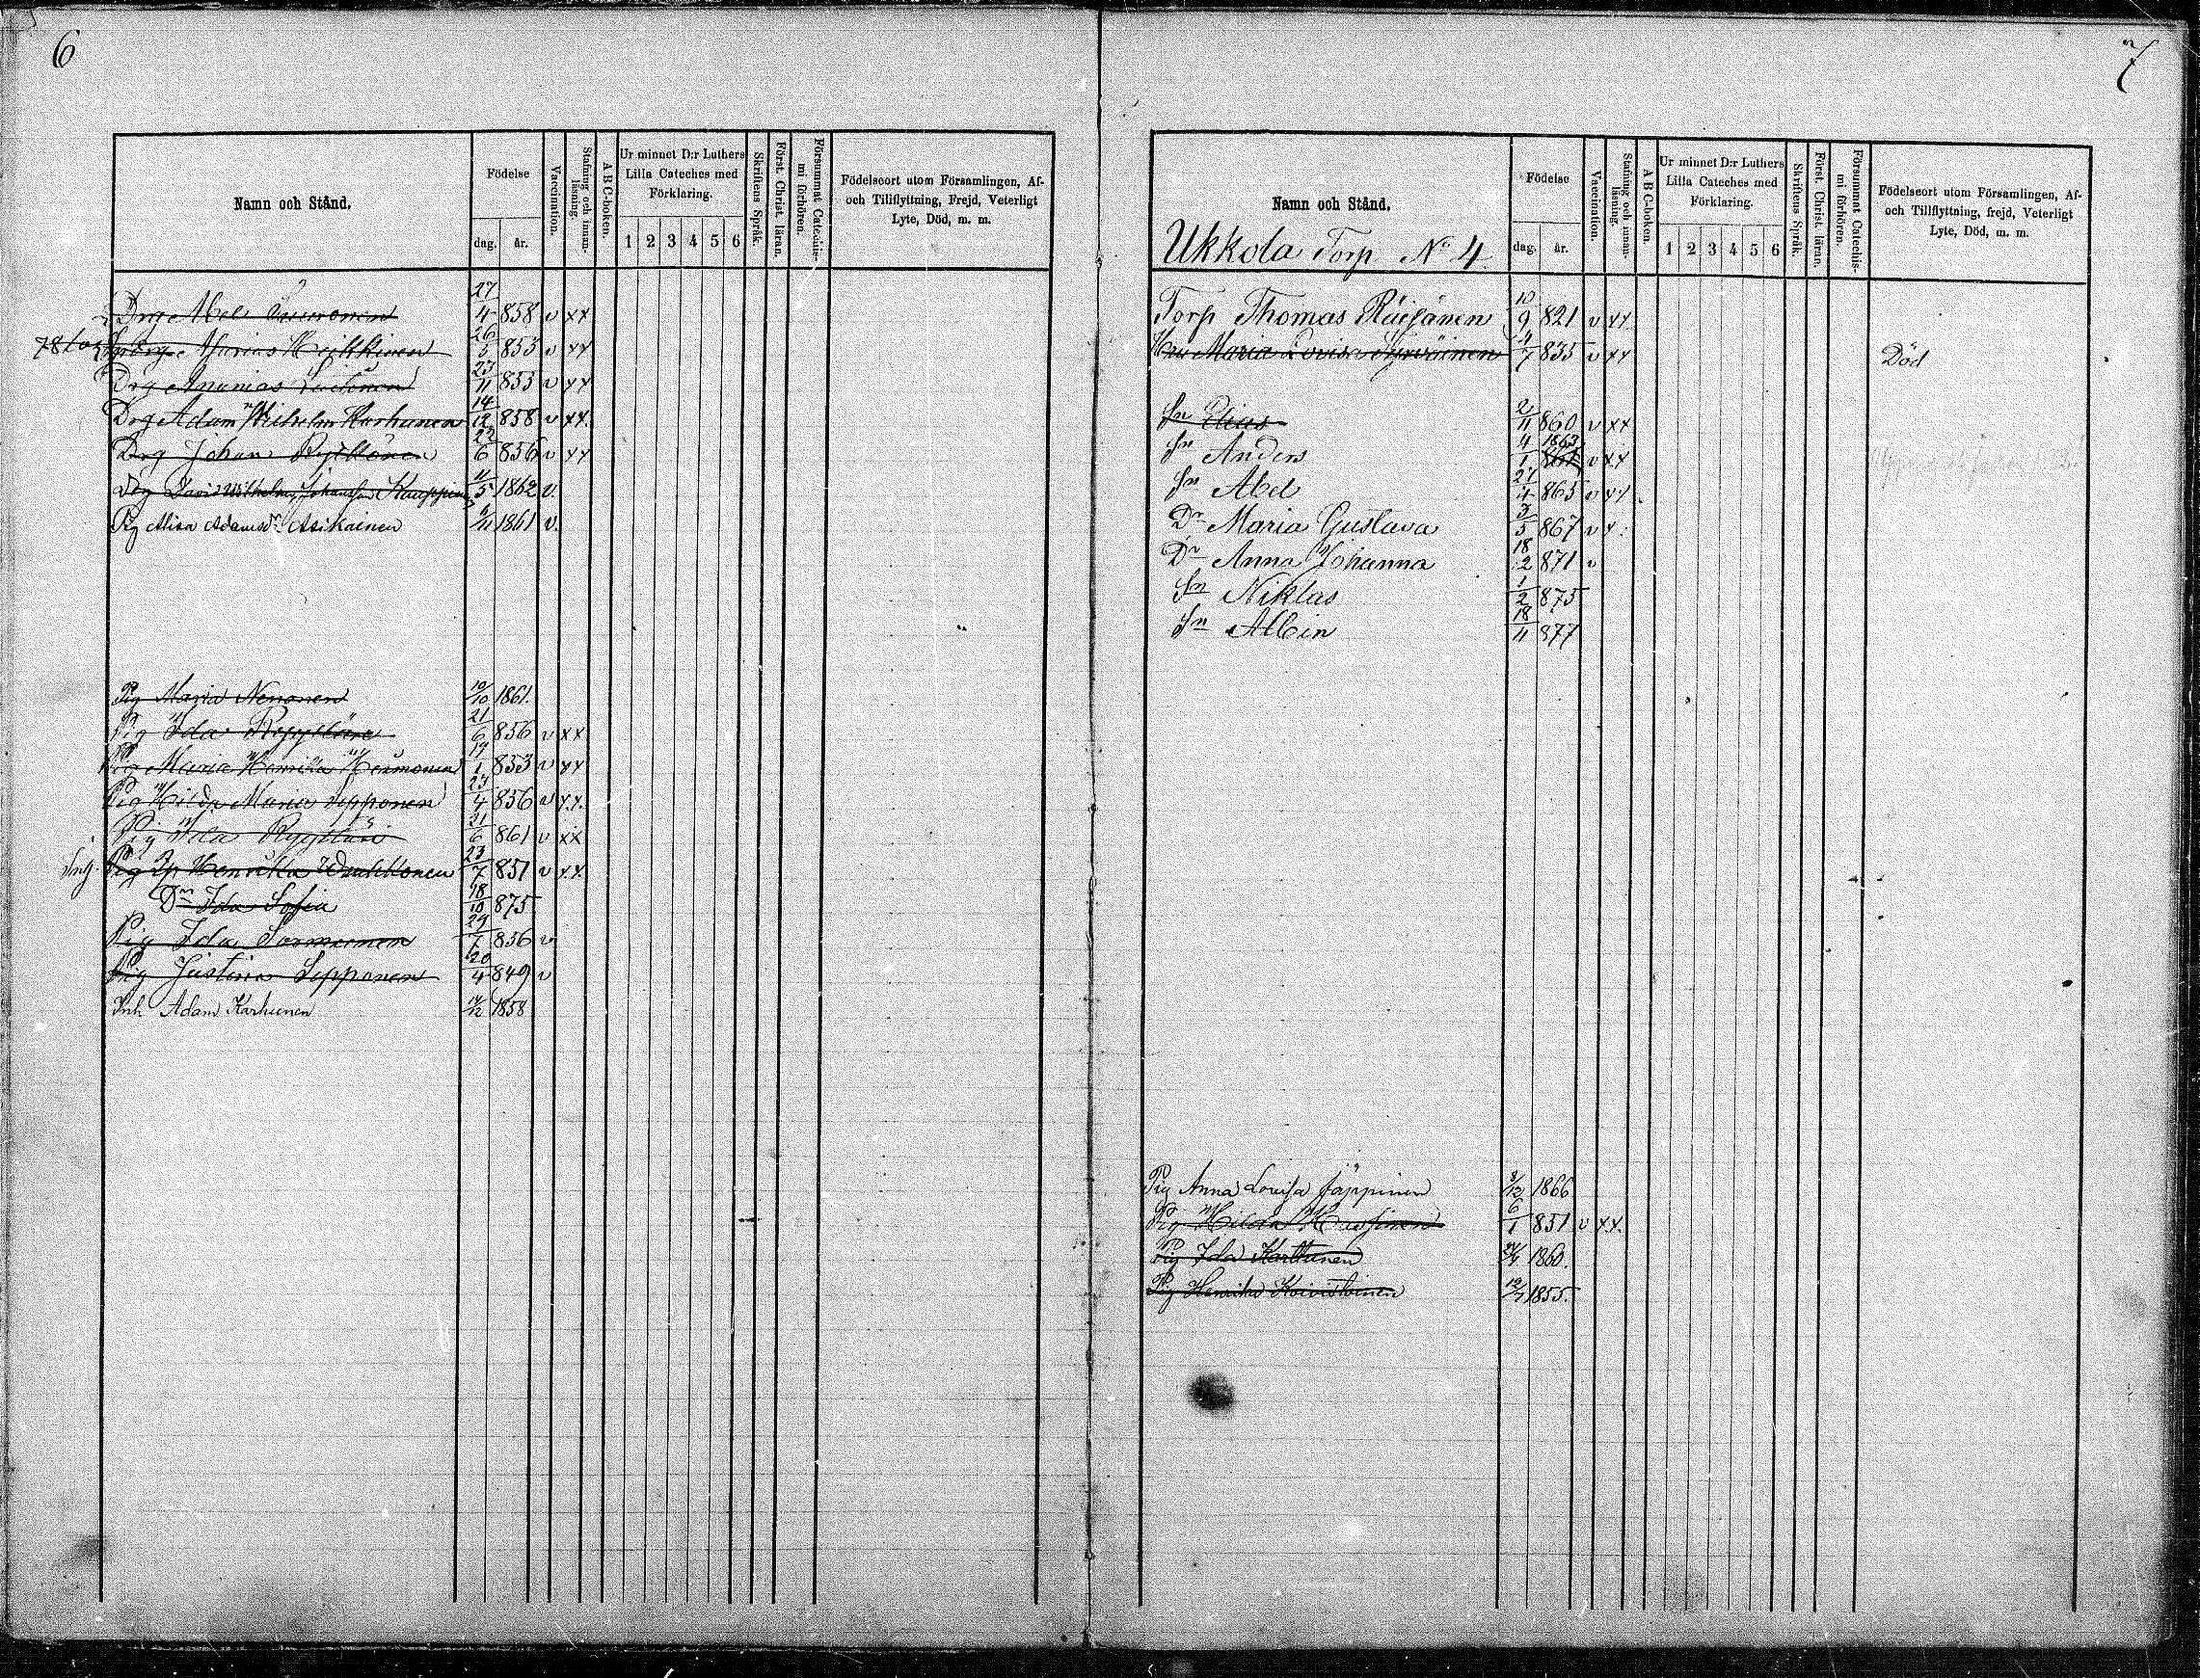 6
Namn och Stånd.
Födelse
dag. år.
Vaccination.
Stafning och innan-läsning.
A B C-boken.
Ur minnet D:r Luthers
Lilla Cateches med
Förklaring.
1 2 3 4 5 6
Skriftens Språk.
Först. Christ. läran.
Försummat Catechis-mi förhören.
Födelseort utom Församlingen, Af-
och Tillflyttning, Frejd, Veterligt
Lyte, Död, m. m.
Drg Abel 27/4 858 v xx
Heikkinen 26/5 853 v xx
Drg Ananias 23/11 853 v xx
Drg Adam Wilhelm Karhunen 14/12 858 v xx
Drg Johan 22/6 856 v xx
Drg David Wilhelm Johansson Kauppinen 1862 v.
Pig Alisa Adamsdr Asikainen 1861 v.
Pig Maria Nenonen 10/10 1861.
Pig Ida 21/6 856 v xx
Pig Maria Henrika 853 v xx
Pig Hilda Maria Sepponen 23/4 856 v xx.
Pig Ida 21/6 861 v xx
Pig Henrika 23/7 851 v xx
Dr Ida Sofia 18/10 875
Pig Ida Sormunen 29/7 856 v
Pig Justina Sepponen 20/4 849 v
Inh Adam Karhunen 14/12 1858
7
Namn och Stånd.
Ukkola Torp No 4.
Födelse
dag. år.
Vaccination.
Stafning och innan-läsning.
A B C-boken.
Ur minnet D:r Luthers
Lilla Cateches med
Förklaring.
1 2 3 4 5 6
Skriftens Språk.
Först. Christ. läran.
Försummat Catechis-mi förhören.
Födelseort utom Församlingen, Af-
och Tillflyttning, frejd, Veterligt
Lyte, Död, m. m.
Torp Thomas Räisänen 10/9 821 v xx
Hru Maria Lovisa Hyvärinen 4/7 835 v xx Död
Sn Elias 2/11 860 v xx
Sn Anders 4/1 1863 v xx
Sn Abel 865 v xx
Dr Maria Gustava 3/5 867 v x
Dr Anna Johanna 18/2 871 v
Sn Niklas 1/2 875
Sn Albin 18/11 877
Pig Anna Lovisa Jäppinen 1866
Pig Hilda 6/1 851 v xx.
Pig Ida Karttunen 1860.
Pig Henrika Koivistoinen 1855.